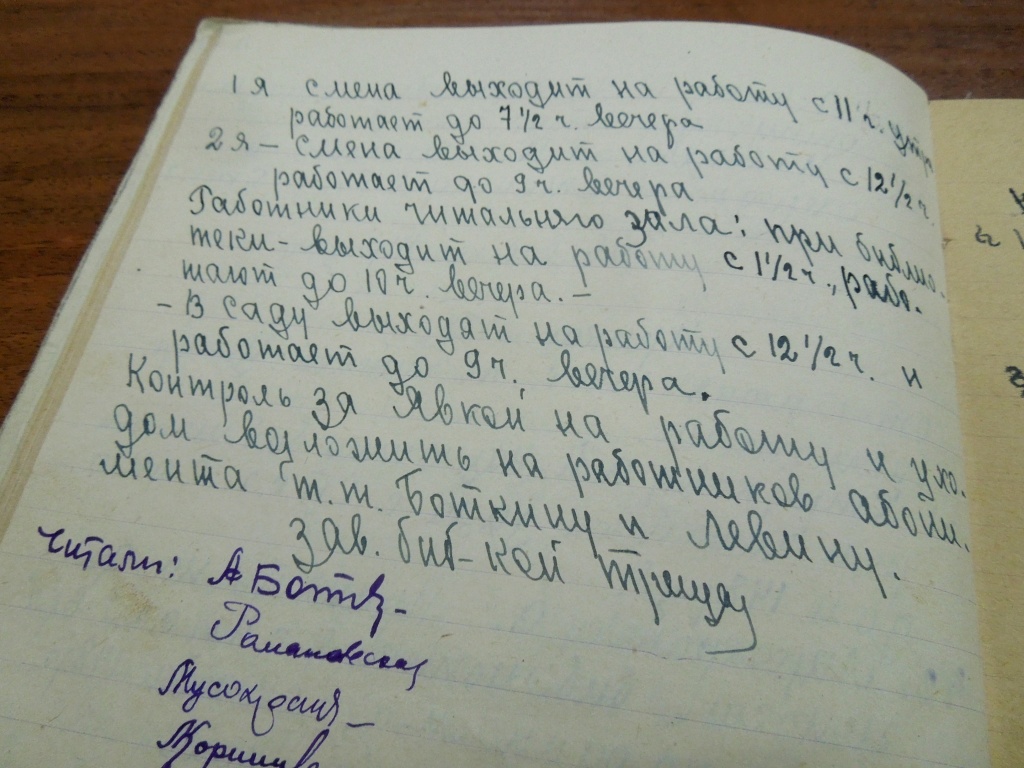 1я смена выходит на работу с 11 ч. утра
работает до 7 1/2 ч. вечера
2я – смена выходит на работу с 12 1/2 ч.
работает до 9 ч. вечера
Работники читального зала: при библио-
теки - выходит на работу с 1 1/2 ч., рабо-
тают до 10 ч. вечера. –
– В саду выходят на работу с 12 1/2 ч. и
работает до 9 ч. вечера.
Контроль за явкой на работу и ухо-
дом возложить на работников абони-
мента т.т. Боткину и Левину.
Зав. биб-кой
Читали: А Ботк
Романовская